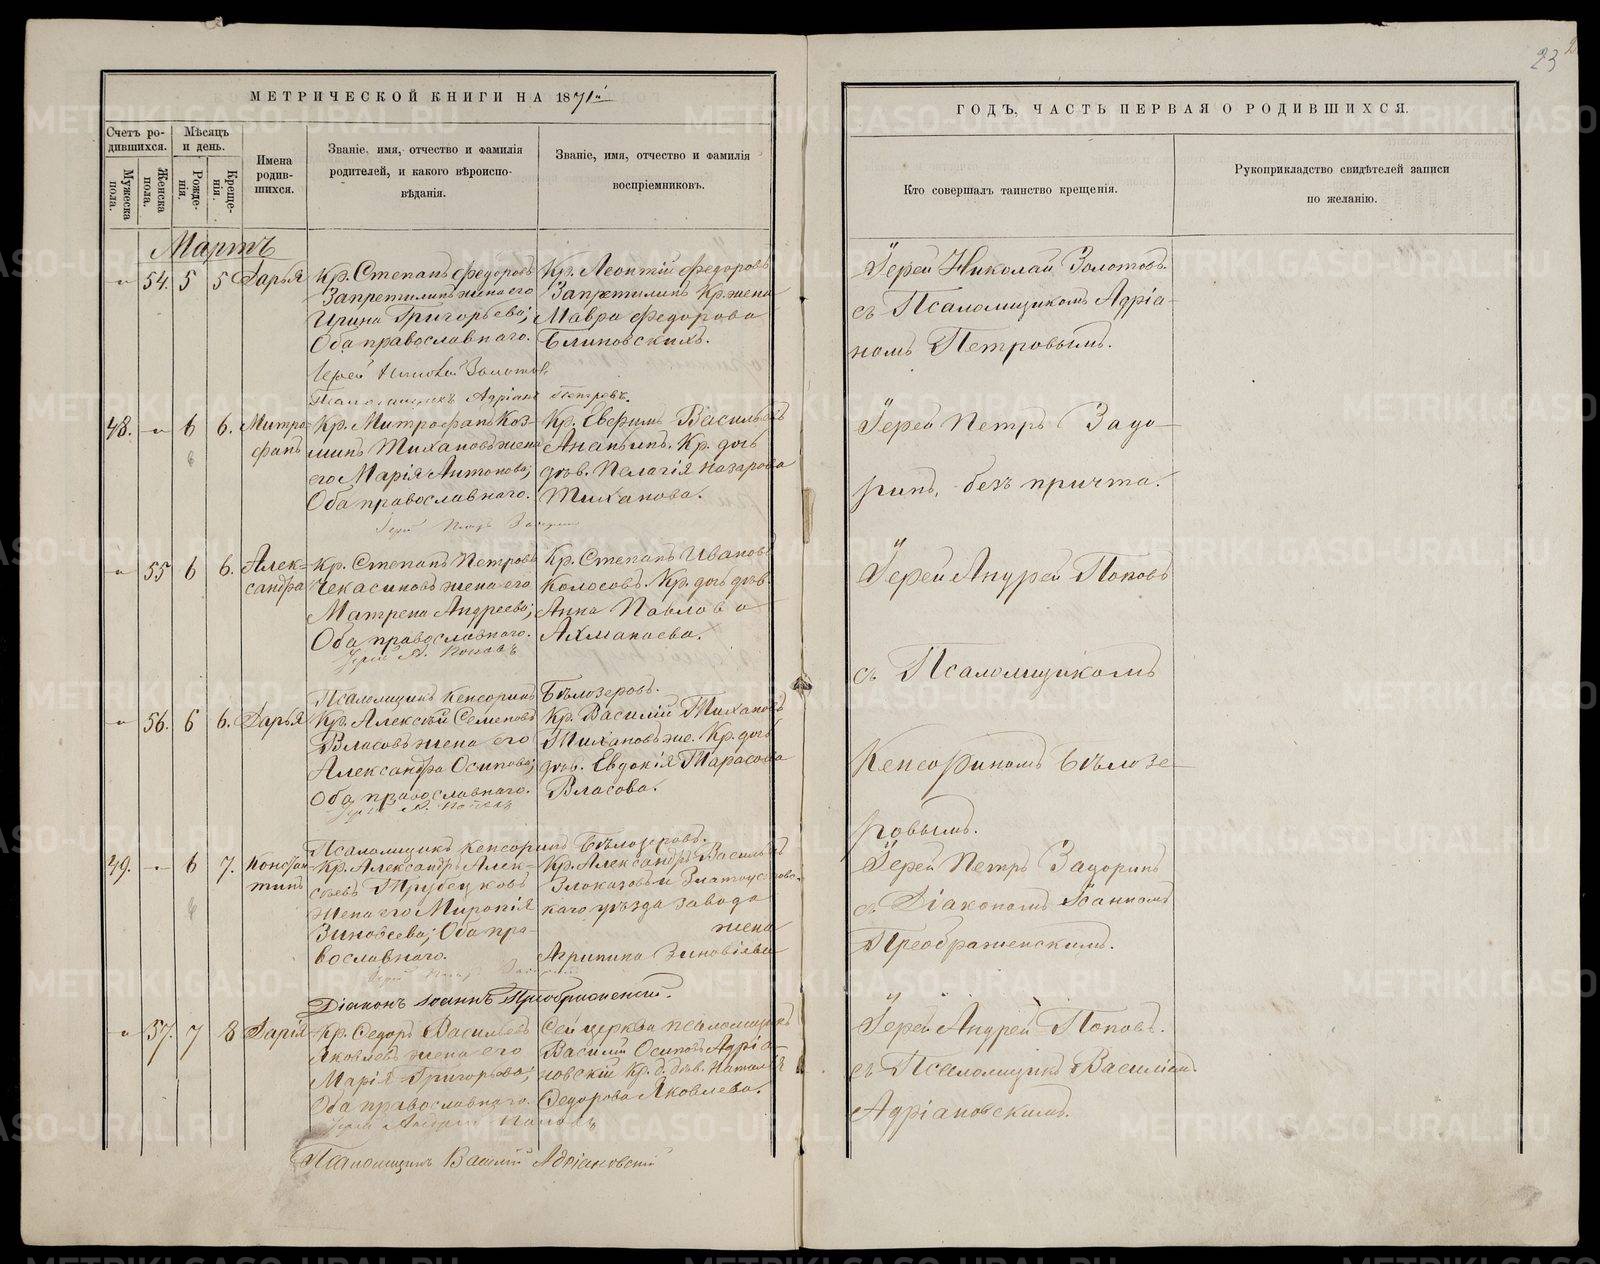 23
МЕТРИЧЕСКОЙ КНИГИ НА 1871й
Счетъ родившихся.
Мѣсяцъ и день.
Мужеска пола.
Женска пола.
Рожденія.
Крещенія.
Имена родив-
шихся.
Званіе, имя, отчество и фамилія
родителей, и какого вѣроиспо-
вѣданія.
Званіе, имя, отчество и фамилія
воспріемниковъ.
Мартъ
54. 5 5 Дарья
Кр. Степанъ Федоровъ
Запретилинъ жена его
Ирина Григорьева;
Оба православнаго.
Кр. Леонтій Федоровъ
Запретилинъ Кр. жена
Мавра Федорова
Блиновскихъ.
Іерей Николай Золотовъ
Псаломщикъ Адріанъ Петровъ.
48. 6 6. Митро-
фанъ
Кр. Митрофанъ Коз-
минъ Тихановъ жена
его Марія Антонова;
Оба православнаго.
Кр. Евфимъ Васильевъ
Ананьинъ. Кр. дочь
дѣв. Пелагія Назарова
Тиханова.
Іерей Петръ Задоринъ
55 6 6. Алек-
сандра
Кр. Степанъ Петровъ
Чекасиновъ жена его
Матрена Андреева;
Оба православнаго.
Кр. Степанъ Ивановъ
Колосовъ. Кр. дочь дѣв.
Анна Павлова
Ахманаева.
Іерей А. Поповъ
Псаломщикъ Кенсоринъ Бѣлозеровъ.
56. 6 6. Дарья
Кр. Алексѣй Семеновъ
Власовъ жена его
Александра Осипова;
Оба православнаго.
Кр. Василій Тихановъ
Тихановъ же. Кр. дочь
дѣв. Евдокія Тарасова
Власова.
Іерей А. Поповъ
Псаломщикъ Кенсоринъ Бѣлозеровъ.
49. 6 7. Констан-
тинъ
Кр. Александръ Алек-
сѣевъ Трубецковъ
жена его Миропія
Зиновеева; Оба пра-
вославнаго.
Кр. Александръ Васильевъ
Злоказовъ и Златоустовс-
каго уѣзда завода
жена
Агрипина Зиновіева
Іерей Петръ Задоринъ
Діаконъ Іоаннъ Преображенскій.
57. 7 8 Дарія
Кр. Федоръ Васильевъ
Яковлевъ жена его
Марія Григорьева;
Оба православнаго.
Сей церкви псаломщикъ
Василій Осиповъ Адріа-
новскій Кр. д. дѣв. Наталія
Федорова Яковлева.
Іерей Андрей Поповъ
Псаломщикъ Василій Адріановскій
ГОДЪ, ЧАСТЬ ПЕРВАЯ О РОДИВШИХСЯ.
Кто совершалъ таинство крещенія.
Рукоприкладство свидѣтелей записи
по желанію.
Іерей Николай Золотовъ
съ Псаломщикомъ Адріа-
номъ Петровымъ.
Іерей Петръ Задо-
ринъ, безъ причта.
Іерей Андрей Поповъ
съ Псаломщикомъ
Кенсориномъ Бѣлозе-
ровымъ.
Іерей Петръ Задоринъ
съ Діакономъ Іоанномъ
Преображенскимъ.
Іерей Андрей Поповъ.
съ Псаломщикъ Василіем
Адріановскимъ.
METRIKI.GASO-URAL.RU